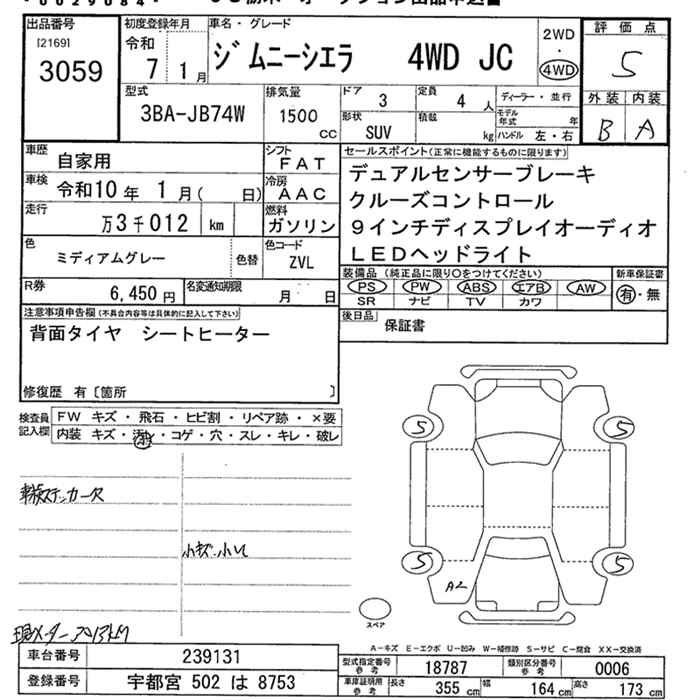 出品番号
[2169]
3059
初度登録年月
令和
7 1月
車名・グレード
ジムニーシエラ 4WD JC
2WD
・
4WD
評価点
S
外装 内装
B A
型式
3BA-JB74W
排気量
1500
CC
ドア 3
定員 4人
形状 SUV
積載 kg
ディーラー・並行
モデル年式 年
ハンドル 左・右
車歴 自家用
車検 令和10年 1月( 日)
走行 万3千012 km
色 ミディアムグレー 色替
シフト FAT
冷房 AAC
燃料 ガソリン
色コード ZVL
R券 6,450円
名変通知期限 月 日
セールスポイント(正常に機能するものに限ります)
デュアルセンサーブレーキ
クルーズコントロール
9インチディスプレイオーディオ
LEDヘッドライト
装備品(純正品に限り○をつけてください)
PS PW ABS エアB AW
SR ナビ TV カワ
新車保証書
有・無
後日品 保証書
注意事項申告欄(不具合内容等は具体的に記入して下さい)
背面タイヤ シートヒーター
修復歴 有〔箇所 〕
検査員記入欄
FW キズ・飛石・ヒビ割・リペア跡・×要
内装 キズ・汚れ・コゲ・穴・スレ・キレ・破レ
車検ステッカー欠
小キズ・小凹
現メーター 3013KM
S
S
S
S
A2
スペア
A-キズ E-エクボ U-凹み W-補修跡 S-サビ C-腐食 XX-交換済
車台番号 239131
登録番号 宇都宮 502 は 8753
型式指定番号 参考 18787
類別区分番号 参考 0006
車庫証明用 参考 長さ 355 cm 幅 164 cm 高さ 173 cm